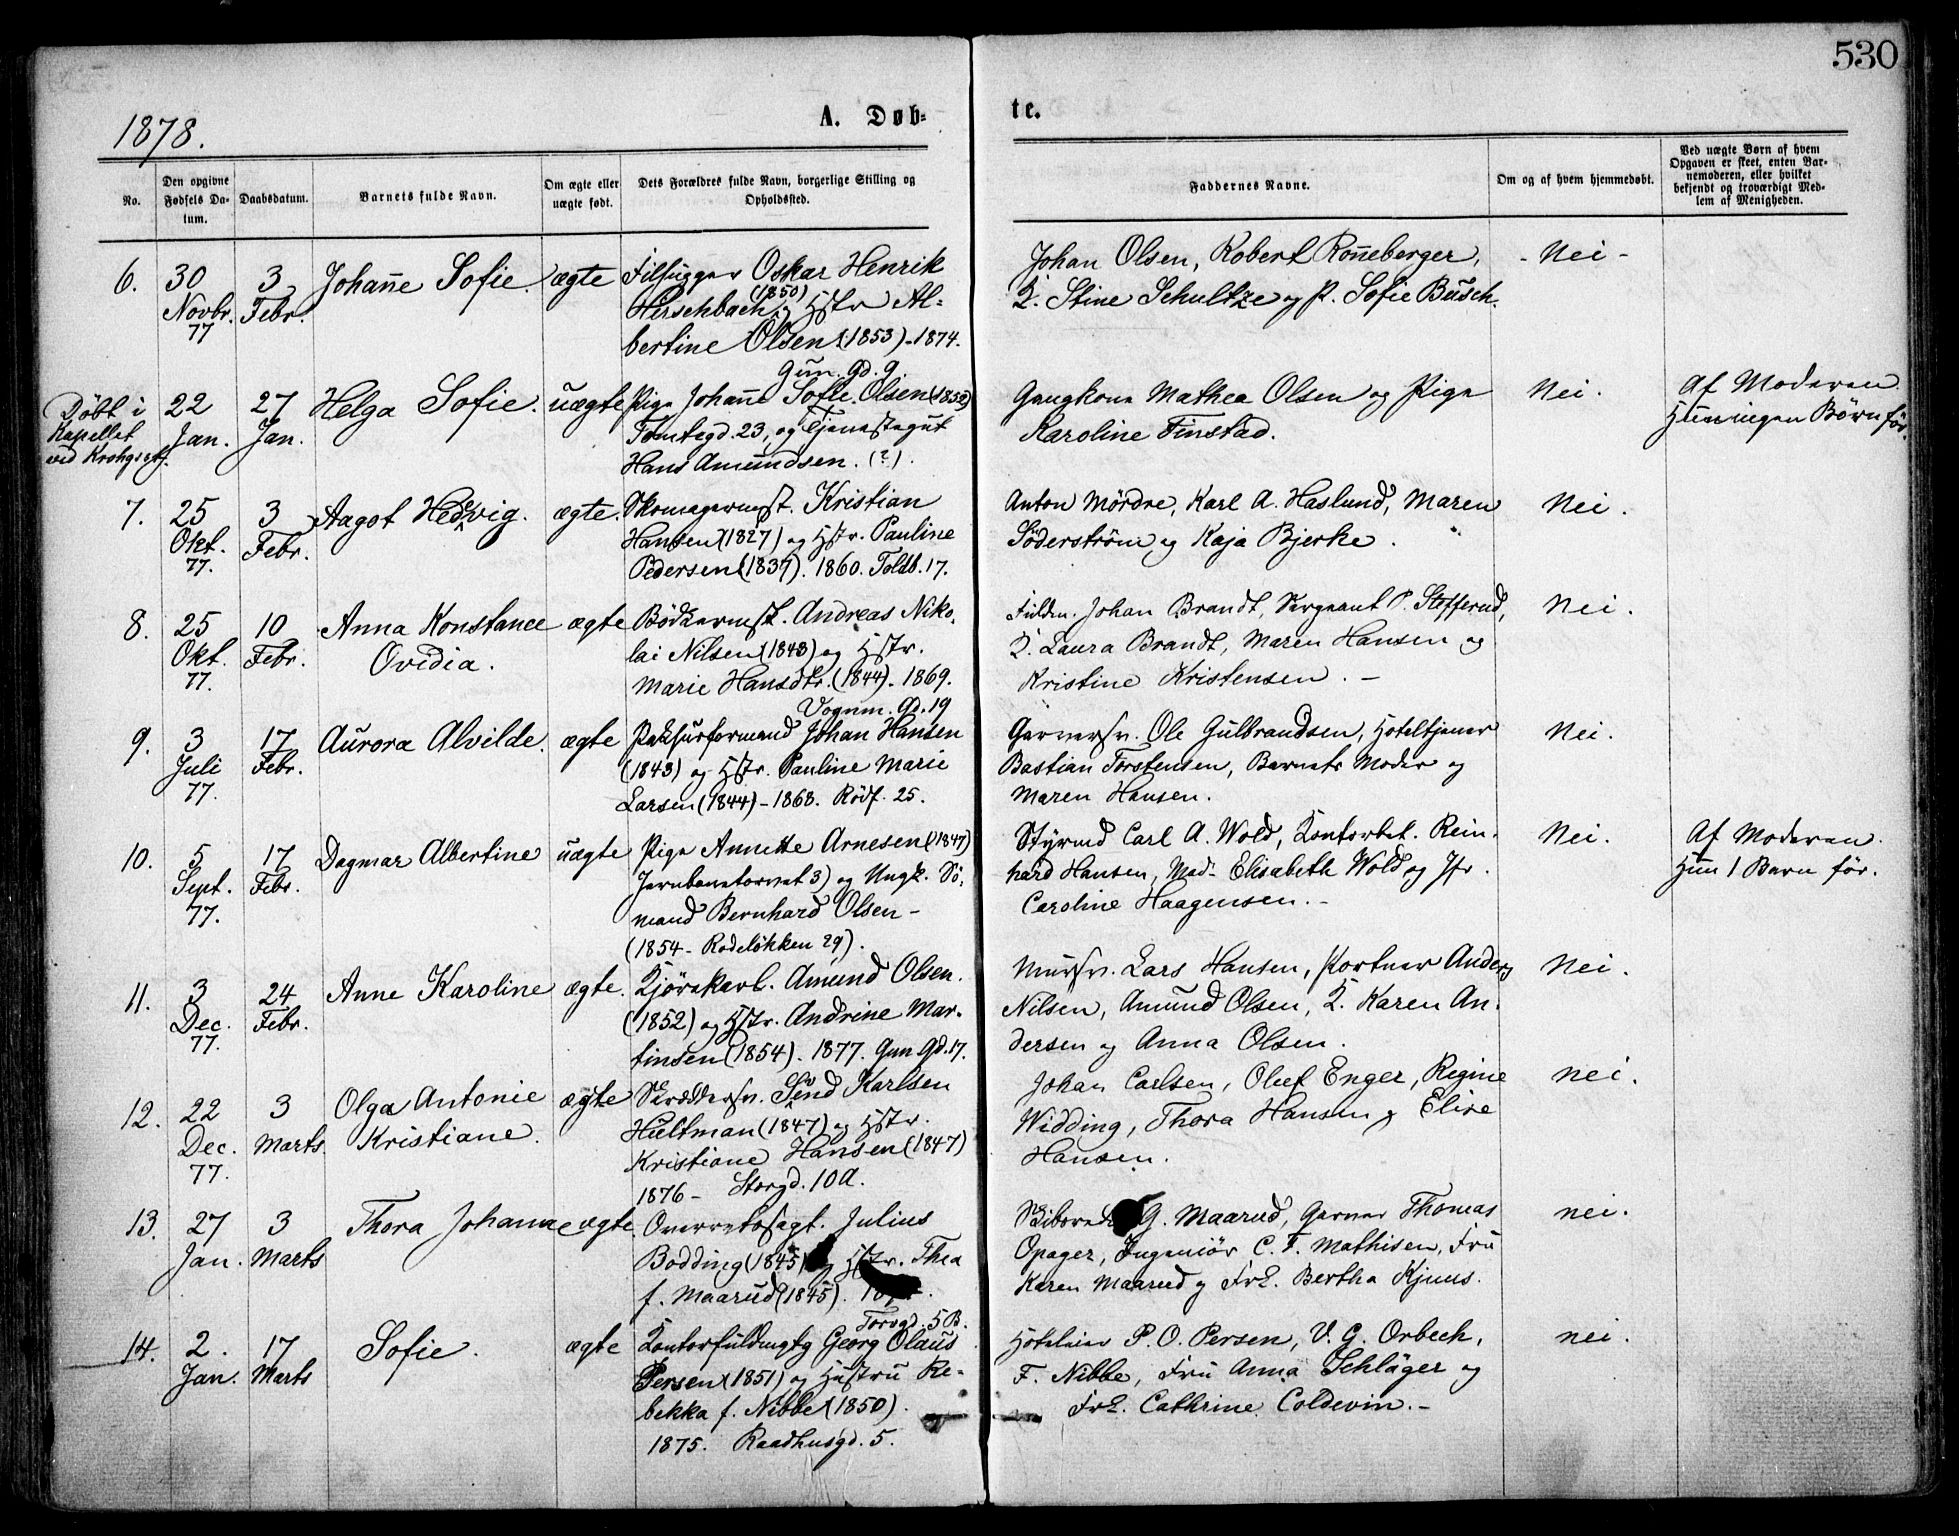 530
1878.
A. Døb-
te.
No.
Den opgivne Fødsels Da-tum.
Daabsdatum.
Barnets fulde Navn.
Om ægte eller uægte født.
Dets Forældres fulde Navn, borgerlige Stilling og Opholdssted.
Faddernes Navne.
Om og af hvem hjemmedøbt.
Ved uægte Børn af hvem Opgaven er skeet, enten Bar-nemoderen, eller hvilket bekjendt og troværdigt Med-lem af Menigheden.
6. 30 Novbr. 77
3 Febr.
Johanne Sofie.
ægte
Filhugger Oskar Henrik
Hirschbach (1850) og Hstr Al-
bertine Olsen (1853) - 1874.
Grün. gd. 9.
Johan Olsen, Robert Ronneberger,
K. Stine Schultze og P. Sofie Busch.
- Nei -
Døbt i
Kapellet
ved Krohgstøt.
22 Jan.
27 Jan.
Helga Sofie.
uægte
Pige Johanne Sofie Olsen (1852)
Tomtegd. 23, og Tjenestegut
Hans Amundsen. (?).
Gangkone Mathea Olsen og Pige
Karoline Finstad.
Nei.
Af Moderen
Hun ingen Børn før.
7. 25 Okt. 77.
3 Febr.
Aagot Hedvig.
ægte.
Skomagermst. Kristian
Hansen (1827) og Hstr. Pauline
Pedersen (1837). 1860. Toldb. 17.
Anton Mørdre, Karl A. Haslund, Maren
Söderström og Kaja Bjerke.
Nei.
8. 25 Okt. 77.
10 Febr.
Anna Konstance
Ovidia.
ægte
Bødkermst. Andreas Niko-
lai Nilsen (1843) og Hstr.
Marie Hansdtr. (1844). 1869.
Vognm. gd. 19
Fuldm. Johan Brandt, Sergeant P. Stefferud,
K. Laura Brandt, Maren Hansen og
Kristine Kristensen. -
Nei.
9. 3 Juli 77.
17 Febr.
Aurora Alvilde.
ægte
Pakhusformand Johan Hansen
(1843) og Hstr. Pauline Marie
Larsen (1844) - 1868. Rödf. 25.
Garversv. Ole Gulbrandsen, Hoteltjener
Bastian Torstensen, Barnets Moder og
Maren Hansen.
Nei.
10. 5 Sept. 77.
17 Febr.
Dagmar Albertine
uægte
Pige Annette Arnesen (1847)
Jernbanetorvet 3) og Ungk. Sö-
mand Bernhard Olsen -
(1854 - Rodeløkken 29).
Styrmd Carl A. Wold, Kontorbet. Rein-
hard Hansen, Mad. Elisabeth Wold og Jfr.
Caroline Haagensen. -
Nei.
Af Moderen.
Hun 1 Barn før.
11. 3 Dec. 77.
24 Febr.
Anne Karoline
ægte.
Kjørekarl. Amund Olsen.
(1852) og Hstr. Andrine Mar-
tinsen (1854). 1877. Grün gd. 17.
Mursv. Lars Hansen, Portner Anders
Nilsen, Amund Olsen, K. Karen An-
dersen og Anna Olsen.
Nei.
12. 22 Dec. 77.
3 Marts.
Olga Antonie
Kristiane.
ægte
Skræddersv. Svend Karlsen
Hultman (1847) og Hstr.
Kristiane Hansen (1847)
1876 - Storgd. 10 A.
Johan Carlsen, Oluf Enger, Regine
Widding, Thora Hansen og Elise
Hansen.
nei.
13. 27 Jan.
3 Marts
Thora Johanne
ægte.
Overretssagf. Julius
Bødding (1845) og Hstr. Thea
f. Maarud (1845).
Torvgd. 5 B.
G. Maarud, Garver Thomas
Opager, Ingeniör C. F. Mathisen, Fru
Karen Maarud og Frk. Bertha Kjuus.
nei.
14. 2. Jan.
17 Marts
Sofie.
ægte
Kontorfuldmgtg Georg Olaus
Persen (1851) og Hustru Re-
bekka f. Nibbe (1850).
1875. Raadhusgd. 5.
Hoteleier P. O. Persen, V. G. Orbech,
F. Nibbe, Fru Anna Schläger og
Frk. Cathrine Coldevin. -
nei.